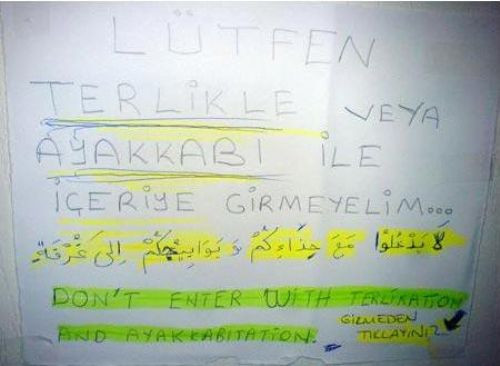 LÜTFEN
TERLiKLE VEYA
AYAKKABI iLE
iÇERiYE GiRMEYELiM...
لَا يَدْخُلُوا مَعَ حِذَاءِكُمْ وَ إِلَى غُرْفَةٍ
DON'T ENTER WITH TERLIKATION
AND AYAKKABITATION.
GiRMEDEN
TIKLAYINIZ